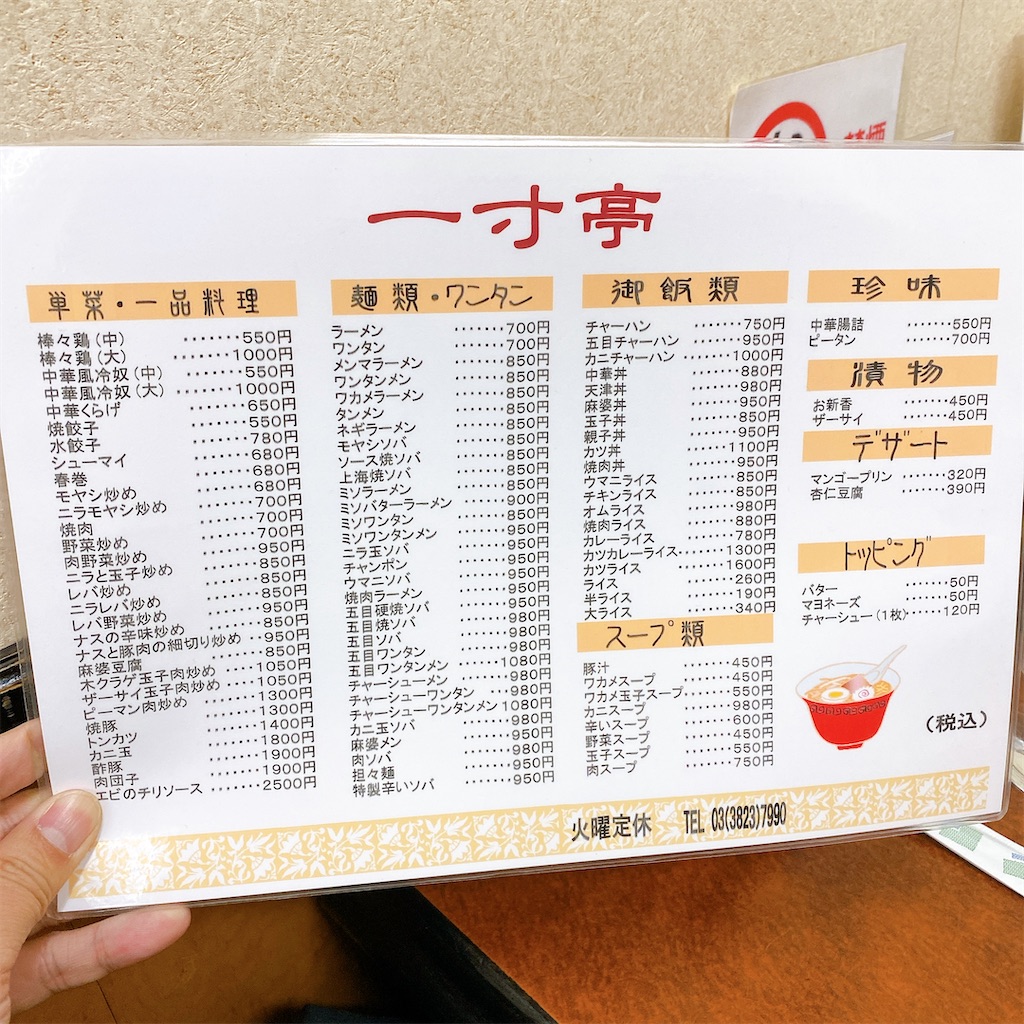 一寸亭
単菜・一品料理
棒々鶏(中)‥‥‥‥550円
棒々鶏(大)‥‥‥‥1000円
中華風冷奴(中)‥‥‥‥550円
中華風冷奴(大)‥‥‥‥1000円
中華くらげ‥‥‥‥650円
焼餃子‥‥‥‥550円
水餃子‥‥‥‥780円
シューマイ‥‥‥‥680円
春巻‥‥‥‥680円
モヤシ炒め‥‥‥‥680円
ニラモヤシ炒め‥‥‥‥700円
焼肉‥‥‥‥700円
野菜炒め‥‥‥‥700円
肉野菜炒め‥‥‥‥950円
ニラと玉子炒め‥‥‥‥850円
レバ炒め‥‥‥‥850円
ニラレバ炒め‥‥‥‥850円
レバ野菜炒め‥‥‥‥950円
ナスの辛味炒め‥‥‥‥850円
ナスと豚肉の細切り炒め‥950円
麻婆豆腐‥‥‥‥850円
木クラゲ玉子肉炒め‥‥‥1050円
ザーサイ玉子肉炒め‥‥‥1050円
ピーマン肉炒め‥‥‥‥1300円
焼豚‥‥‥‥1300円
トンカツ‥‥‥‥1400円
カニ玉‥‥‥‥1800円
酢豚‥‥‥‥1900円
肉団子‥‥‥‥1900円
エビのチリソース‥‥‥‥2500円
麺類・ワンタン
ラーメン‥‥‥‥700円
ワンタン‥‥‥‥700円
メンマラーメン‥‥‥‥850円
ワンタンメン‥‥‥‥850円
ワカメラーメン‥‥‥‥850円
タンメン‥‥‥‥850円
ネギラーメン‥‥‥‥850円
モヤシソバ‥‥‥‥850円
ソース焼ソバ‥‥‥‥850円
上海焼ソバ‥‥‥‥850円
ミソラーメン‥‥‥‥850円
ミソバターラーメン‥‥‥‥900円
ミソワンタン‥‥‥‥950円
ミソワンタンメン‥‥‥‥950円
ニラ玉ソバ‥‥‥‥950円
チャンポン‥‥‥‥950円
ウマニソバ‥‥‥‥950円
焼肉ラーメン‥‥‥‥950円
五目硬焼ソバ‥‥‥‥980円
五目焼ソバ‥‥‥‥980円
五目ソバ‥‥‥‥980円
五目ワンタン‥‥‥‥980円
五目ワンタンメン‥‥‥‥1080円
チャーシューメン‥‥‥‥980円
チャーシューワンタン‥‥‥980円
チャーシューワンタンメン 1080円
カニ玉ソバ‥‥‥‥980円
麻婆メン‥‥‥‥950円
肉ソバ‥‥‥‥980円
担々麺‥‥‥‥950円
特製辛いソバ‥‥‥‥950円
御飯類
チャーハン‥‥‥‥750円
五目チャーハン‥‥‥‥950円
カニチャーハン‥‥‥‥1000円
中華丼‥‥‥‥880円
天津丼‥‥‥‥980円
麻婆丼‥‥‥‥950円
玉子丼‥‥‥‥850円
親子丼‥‥‥‥950円
カツ丼‥‥‥‥1100円
焼肉丼‥‥‥‥950円
ウマニライス‥‥‥‥850円
チキンライス‥‥‥‥850円
オムライス‥‥‥‥980円
焼肉ライス‥‥‥‥880円
カレーライス‥‥‥‥780円
カツカレーライス‥‥‥‥1300円
カツライス‥‥‥‥1600円
ライス‥‥‥‥260円
半ライス‥‥‥‥190円
大ライス‥‥‥‥340円
スープ類
豚汁‥‥‥‥450円
ワカメスープ‥‥‥‥450円
ワカメ玉子スープ‥‥‥‥550円
カニスープ‥‥‥‥980円
辛いスープ‥‥‥‥600円
野菜スープ‥‥‥‥450円
玉子スープ‥‥‥‥550円
肉スープ‥‥‥‥750円
珍味
中華腸詰‥‥‥‥550円
ピータン‥‥‥‥700円
漬物
お新香‥‥‥‥450円
ザーサイ‥‥‥‥450円
デザート
マンゴープリン‥‥‥‥320円
杏仁豆腐‥‥‥‥390円
トッピング
バター‥‥‥‥50円
マヨネーズ‥‥‥‥50円
チャーシュー(1枚)‥‥‥120円
(税込)
火曜定休 TEL 03(3823)7990